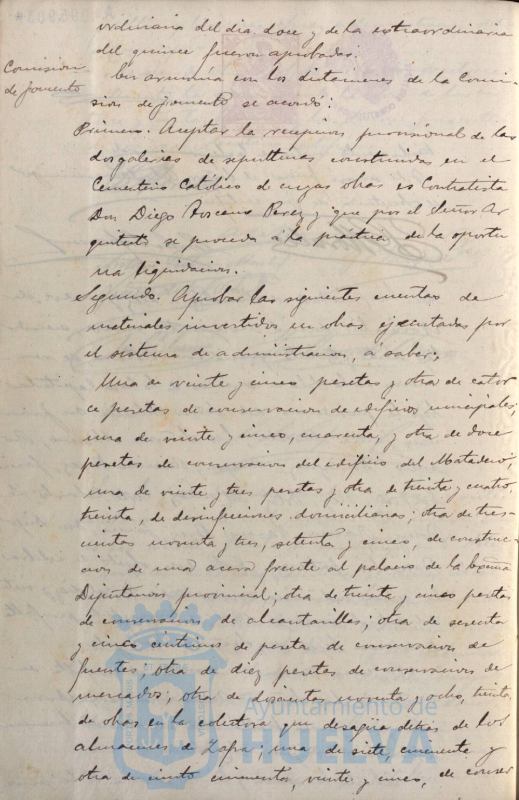 ordinaria del dia doce y de la extraordinaria
del quince fueron aprobadas.
Comision
de fomento
En armonía con los dictamenes de la Comi-
sion de fomento se acordó:
Primero. Aceptar la recepcion provisional de las
dos galerias de sepulturas construidas en el
Cementerio Católico de cuyas obras es Contratista
Don Diego Toscano Perez y que por el Señor Ar
quitecto se proceda á la práctica de la oportu
na liquidacion.
Segundo. Aprobar las siguientes cuentas de
materiales invertidos en obras ejecutadas por
el sistema de administracion, á saber:
Una de veinte y cinco pesetas y otra de cator
ce pesetas de conservacion de edificios municipales;
una de veinte y cinco, cuarenta, y otra de doce
pesetas de conservacion del edificio del Matadero;
una de veinte y tres pesetas y otra de treinta y cuatro,
treinta, de desinfecciones domiciliarias; otra de tres-
cientas noventa y tres, setenta y cinco, de construc-
cion de una acera frente al palacio de la Excma
Diputacion provincial; otra de treinta y cinco pesetas
de conservacion de alcantarillas; otra de sesenta
y cinco céntimos de peseta de conservacion de
fuentes; otra de diez pesetas de conservacion de
mercados; otra de doscientas noventa y ocho, treinta,
de obras en la colectora que desagüa detrás de los
almacenes de Zafra; una de siete, cincuenta y
otra de ciento cincuenta, veinte y cinco, de conser
Ayuntamiento de
HUELVA